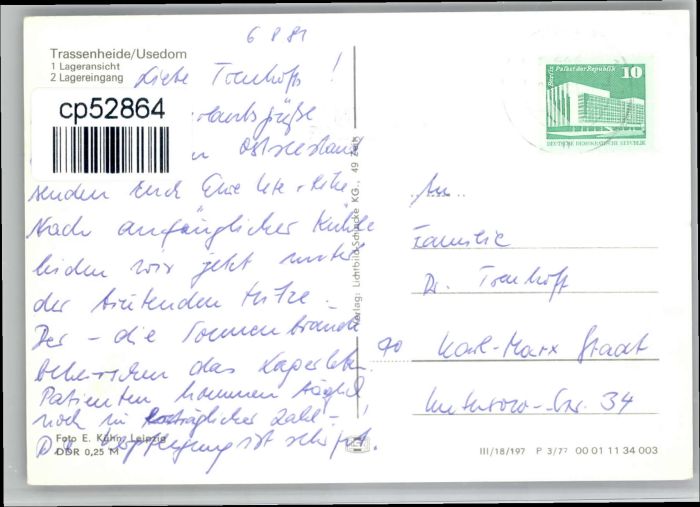 6 8 81
Trassenheide/Usedom
1 Lageransicht
2 Lagereingang
Liebe !
cp52864
senden Euch
Nach anfänglicher Kühle
leiden wir jetzt unter
der brütenden Hitze -
Der - die Sonnenbrände
beherrschen das Lagerleben.
Patienten kommen täglich
noch in Zahl - !
Die Verpflegung ist sehr gut.
Foto E. Kühn, Leipzig
DDR 0,25 M
Verlag: Lichtbild-Schincke KG., 49 Zeitz
Berlin Palast der Republik
10
DEUTSCHE DEMOKRATISCHE REPUBLIK
An
Familie
Dr.
90 Karl-Marx Stadt
Str. 34
III/18/197 P 3/77 00 01 11 34 003